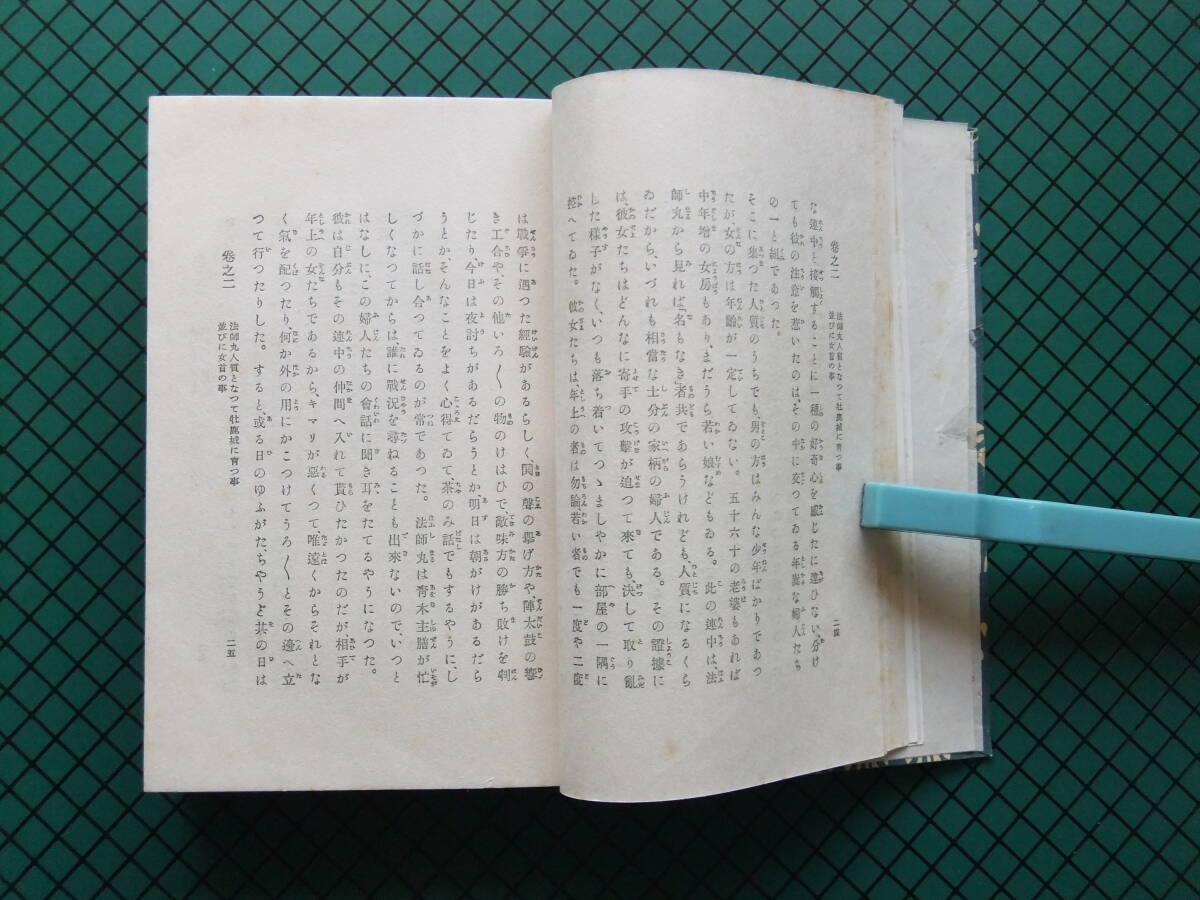 卷之二
法師丸人質となつて牡鹿城に育つ事
並びに女首の事
二四
な連中と接觸することに一種の好奇心を感じたに違ひない、分け
ても彼の注意を惹いたのは、その中に交つてゐる年嵩な婦人たち
の一と組であつた。
そこに集つた人質のうちでも、男の方はみんな少年ばかりであつ
たが女の方は年齡が一定してゐない。五十六十の老婆もあれば
中年增の女房もあり、まだうら若い娘などもゐる。此の連中は、法
師丸から見れば「名もなき」者共であらうけれども、人質になるくら
ゐだから、いづれも相當な士分の家柄の婦人である。その證據に
は、彼女たちはどんなに寄手の攻擊が迫つて來ても、決して取り亂
した樣子がなく、いつも落ち着いてつゝましやかに部屋の一隅に
控へてゐた。彼女たちは、年上の者は勿論若い者でも一度や二度
は戰爭に遇つた經驗があるらしく、鬨の聲の擧げ方や、陣太鼓の響
き工合や、その他いろ〱の物のけはひで、敵味方の勝ち敗けを判
じたり、今日は夜討ちがあるだらうとか明日は朝がけがあるだら
うとか、そんなことをよく心得てゐて、茶のみ話でもするやうに、し
づかに話し合つてゐるのが常であつた。法師丸は靑木主膳が忙
しくなつてからは、誰に戰況を尋ねることも出來ないので、いつと
はなしに、この婦人たちの會話に聞き耳をたてるやうになつた。
彼は自分もその連中の仲間へ入れて貰ひたかつたのだが、相手が
年上の女たちであるから、キマリが惡くつて、唯遠くからそれとな
く氣を配つたり、何か外の用にかこつけてうろ〱とその邊へ立
つて行つたりした。すると、或る日のゆふがた、ちやうど其の日は
卷之二
法師丸人質となつて牡鹿城に育つ事
並びに女首の事
二五